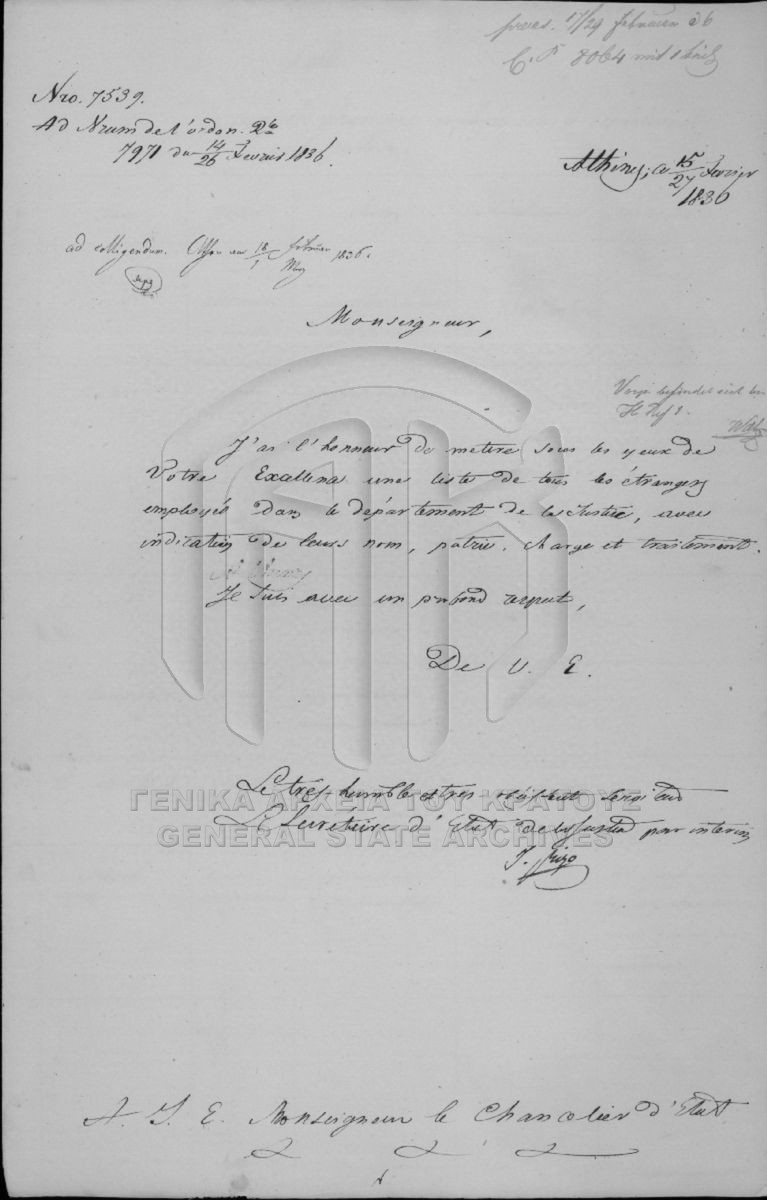 praes. 17/29 februar 36
C. P. 8064 mit 1 beil
Nro. 7539.
Ad Nrum de l'ordon. 
7971 du 14/26 Fevrier 1836.
Athènes, ce 15/27 Fevrier
1836
ad colligendum. Athen am 18/1 februar/März 1836.
Monseigneur,
befindet sich
J'ai l'honneur de metre sous les yeux de
Votre Excellence une liste de tous les étrangers
employés dans le département de la Justice, avec
indication de leurs nom, patrie, charge et traitement.
Je suis avec un profond respect,
De V. E.
Le très-humble et très obéissant serviteur
Le Secrétaire d'Etat de la Justice par interim
J. Rizo
A. S. E. Monseigneur le Chancelier d'Etat
ΓΕΝΙΚΑ ΑΡΧΕΙΑ ΤΟΥ ΚΡΑΤΟΥΣ
GENERAL STATE ARCHIVES